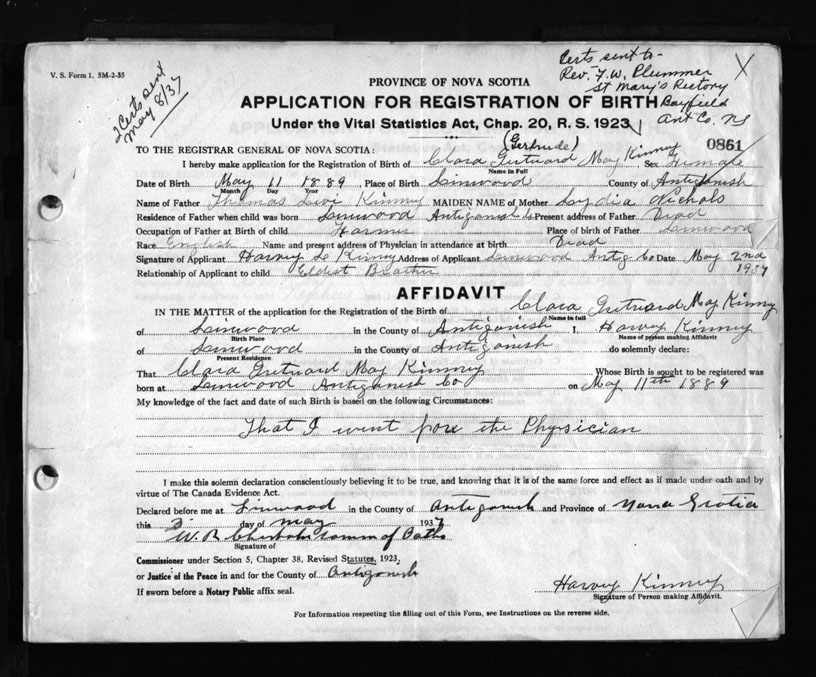 V. S. Form 1. 5M-2-35
2 Certs sent
May 8/37
Certs sent to-
Rev. F. W. Plummer
St Mary's Rectory
Bayfield
Ant Co. NS
X
PROVINCE OF NOVA SCOTIA
APPLICATION FOR REGISTRATION OF BIRTH
Under the Vital Statistics Act, Chap. 20, R. S. 1923
(Gertrude)
0861
TO THE REGISTRAR GENERAL OF NOVA SCOTIA:
I hereby make application for the Registration of Birth of Clara Gutruard May Kinney Sex Female
Name in Full
Date of Birth May 11 1889 Place of Birth Linwood County of Antigonish
Month Day Year
Name of Father Thomas Levi Kinney MAIDEN NAME of Mother Lydia Nichols
Residence of Father when child was born Linwood Antigonish Co Present address of Father Dead
Occupation of Father at Birth of child Farmer Place of birth of Father Linwood
Race English Name and present address of Physician in attendance at birth Dead
Signature of Applicant Harvey L Kinney Address of Applicant Linwood Antig Co Date May 2nd
1937
Relationship of Applicant to child Eldist Brother
AFFIDAVIT
IN THE MATTER of the application for the Registration of the Birth of Clara Gutruard May Kinney
Name in full
of Linwood in the County of Antigonish I, Harvey Kinney
Birth Place Name of person making Affidavit
of Linwood in the County of Antigonish do solemnly declare:
Present Residence
That Clara Gutruard May Kinney Whose Birth is sought to be registered was
born at Linwood Antigonish Co on May 11th 1889
My knowledge of the fact and date of such Birth is based on the following Circumstances:
That I went forx the Physician
I make this solemn declaration conscientiously believing it to be true, and knowing that it is of the same force and effect as if made under oath and by
virtue of The Canada Evidence Act.
Declared before me at Linwood in the County of Antigonish and Province of Nova Scotia
this 3 day of May 1937
W. R. Comm of Oaths
Signature of
Commissioner under Section 5, Chapter 38, Revised Statutes, 1923,
or Justice of the Peace in and for the County of Antigonish
If sworn before a Notary Public affix seal.
Harvey Kinney
Signature of Person making Affidavit.
For Information respecting the filling out of this Form, see Instructions on the reverse side.